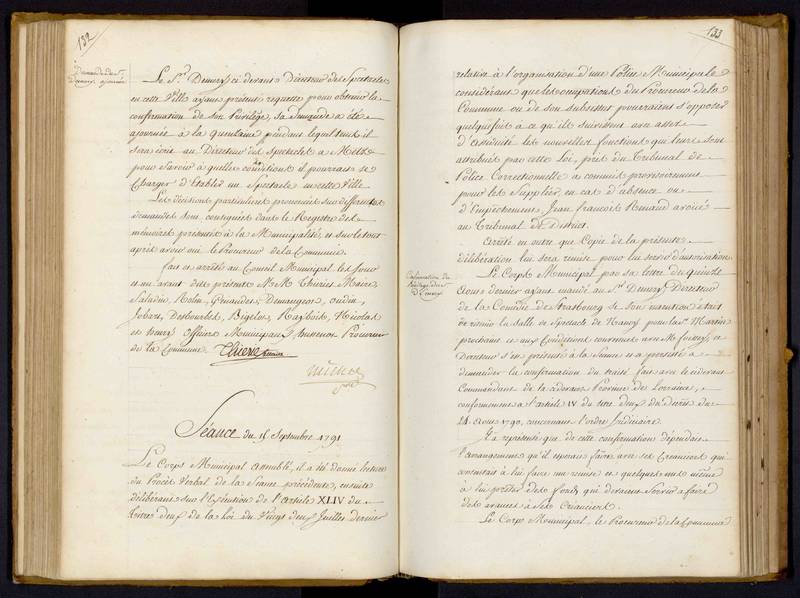 132
Demande de Sr.
Demery ajournée
Le Sr. Demery ci devant Directeur des Spectacles
en cette Ville ayant présenté requette pour obtenir la
confirmation de son Privilége, sa demande a été
ajournée à la quinzaine pendant lequel tems il
sera écrit au Directeur des Spectacles a Metz
pour savoir à quelles conditions il pourrait se
Charger d'établir un Spectacle en cette Ville
Les décisions particulieres prononcées sur différentes
demandes sont consignées dans le Registre des
mémoires présentés à la Municipalité, et sur le tout
après avoir oui le Procureur de la Commune
fait et arrêté au Conseil Municipal les jour
et an avant dits présents MM Thieriet Maire,
Saladin, Rolin, Genaudet, Demangeot, oudin,
Jobart, Desbourbes, Bigelot, Raybois, Nicolas
et henry Officiers Municipaux, hussenot Procureur
de la Commune
Séance du 15 Septembre 1791
Le Corps Municipal assemblé, il a été donné lecture
du Procès Verbal de la Séance précédente, ensuite
délibérant sur l'Exécution de l'article XLIV du
titre deux de la Loi du Vingt deux Juillet dernier
133
relative à l'organisation d'une Police Municipale
considérant que les occupations du Procureur de la
Commune ou de son substitut pourraient s'opposer
quelquefois à ce qu'ils suivissent avec assez
d'assiduité les nouvelles fonctions qui leurs sont
attribuées par cette loi, près du Tribunal de
Police Correctionnelle a commis provisoirement
pour les Suppléer en cas d'absence ou
d'Empêchement Jean francois Renaud avoué
au Tribunal de District.
Arrêté en outre que Copie de la présente
délibération lui sera remise pour lui servir d'autorisation
Confirmation du
Privilége du Sr.
Demery
Le Corps Municipal par sa lettre du quinze
Aout dernier ayant mandé au Sr. Demery Directeur
de la Comédie de Strasbourg si son intention était
de tenir la salle de Spectacle de Nancy pour la St. Martin
prochaine et aux Conditions convenues avec M
Directeur s'est présenté à la Séance et a persisté à
demander la confirmation du traité fait avec le ci devant
Commandant de la ci devant Province de Lorraine,
conformement à l'article IV du titre deux du Décret du
24. Aout 1790, concernant l'ordre Judiciaire
Il a représenté que de cette confirmation dépendait
l'arrangement qu'il espérait faire avec ses Creanciers qui
consentait à lui faire une remise et quelques uns même
à lui prêter des fonds qui devaient servir a faire
des avances à ses Créanciers.
Le Corps Municipal, le Procureur de la Commune